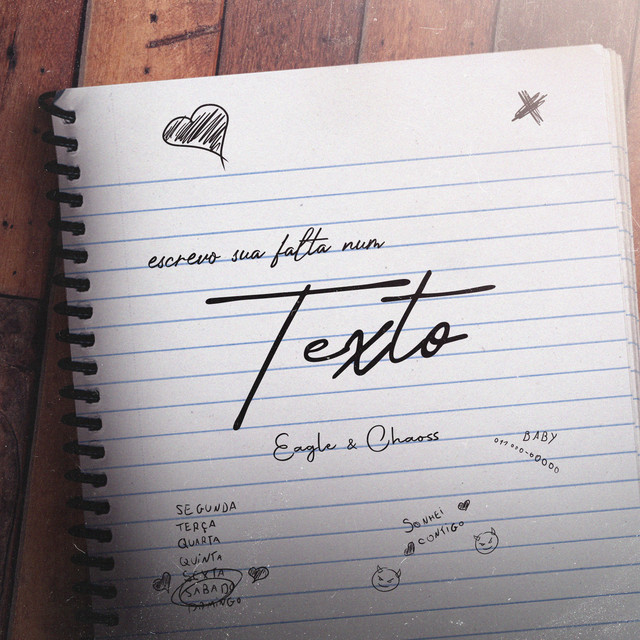 escrevo sua falta num
Texto
Eagle & Chaoss
BABY
SEGUNDA
TERÇA
QUARTA
QUINTA
SEXTA
SÁBADO
DOMINGO
SONHEI
CONTIGO